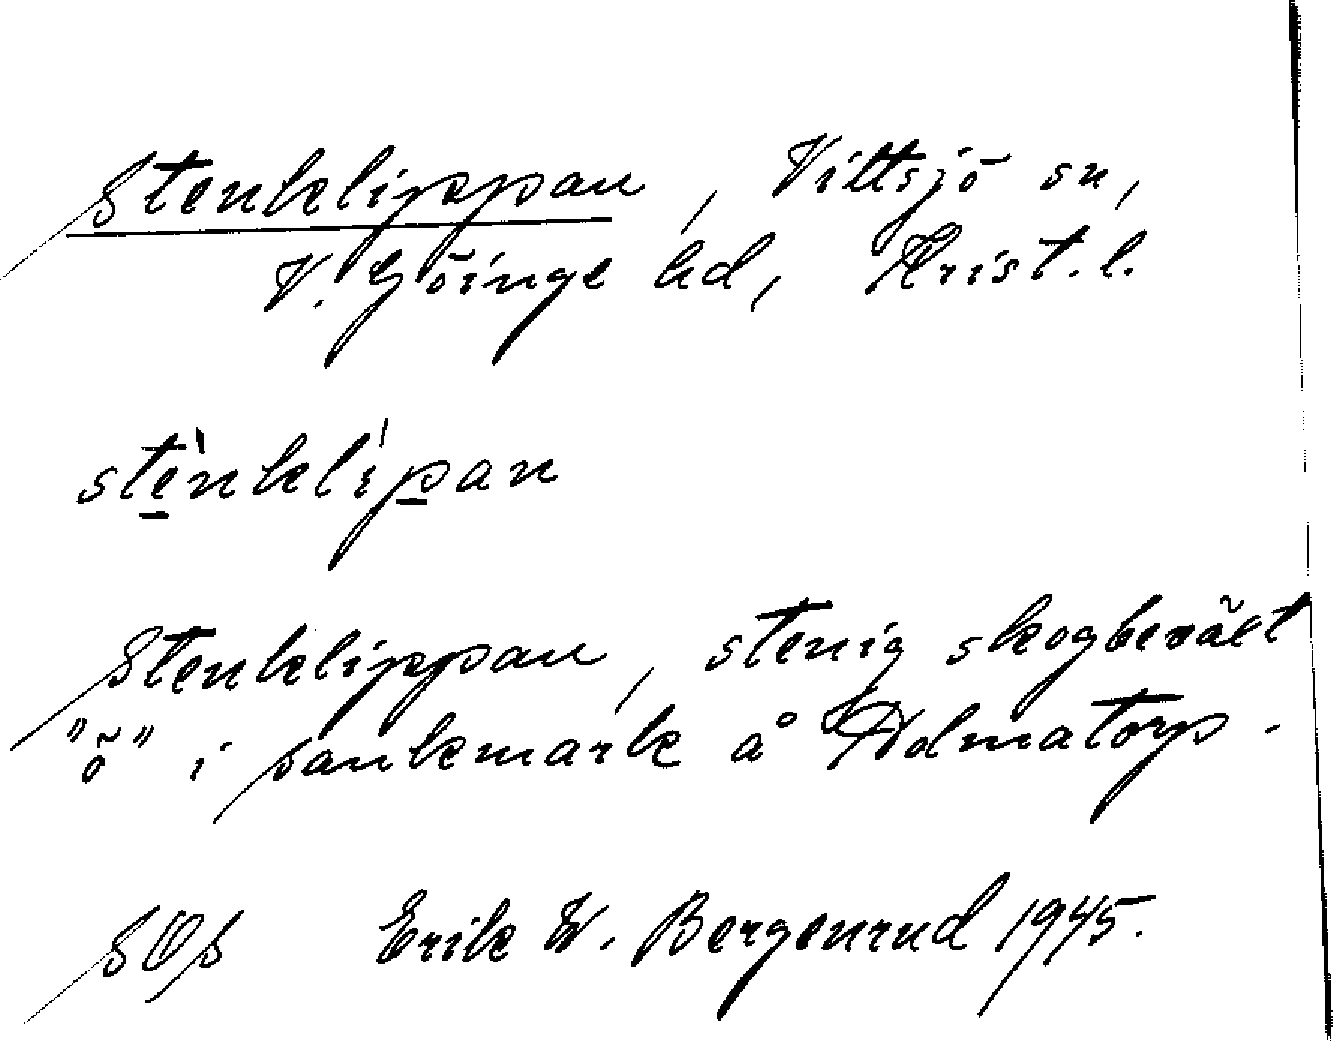 Stenklippan, Vittsjö sn,
V. Göinge hd, Krist. l.
stè̱nklíp̱an
Stenklippan, stenig skogbeväxt
"ö" i sankmark å Admatorp.
SOS Erik W. Bergenrud 1945.